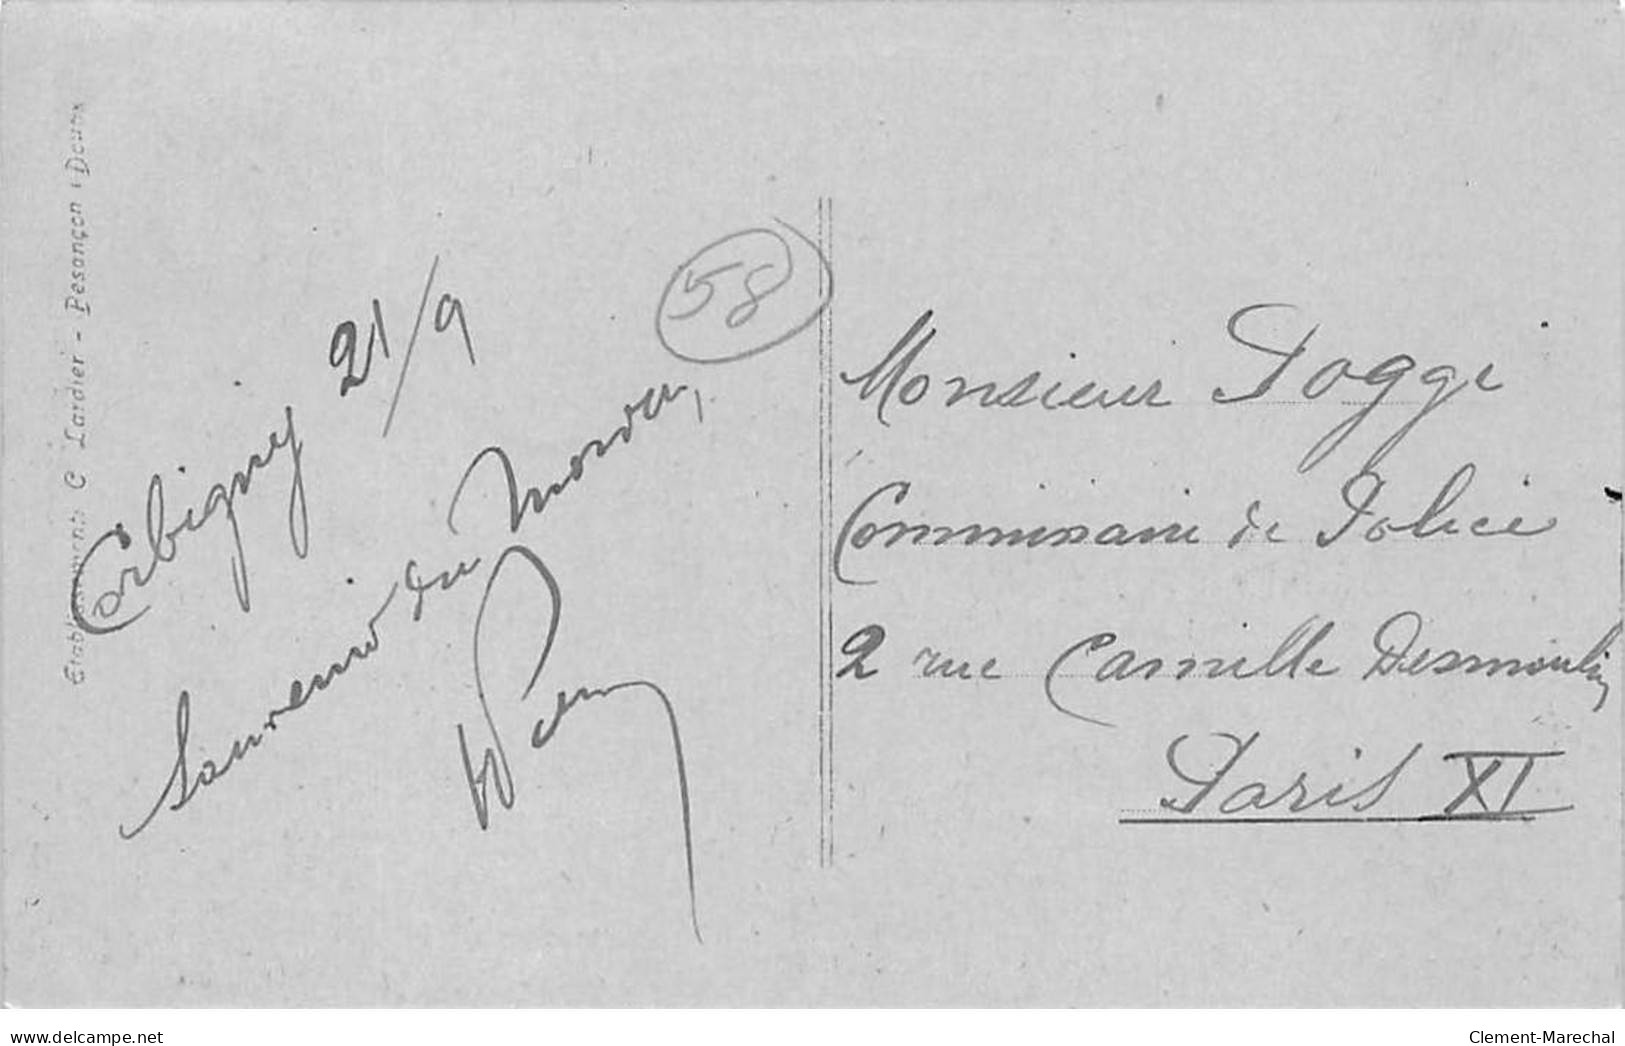 Etablissements C Lardier - Besançon (Doubs)
58
Corbigny 21/9
Souvenir du Morvan,
Monsieur Poggi
Commissaire de Police
2 rue Camille Desmoulins
Paris XI
www.delcampe.net
Clement-Marechal